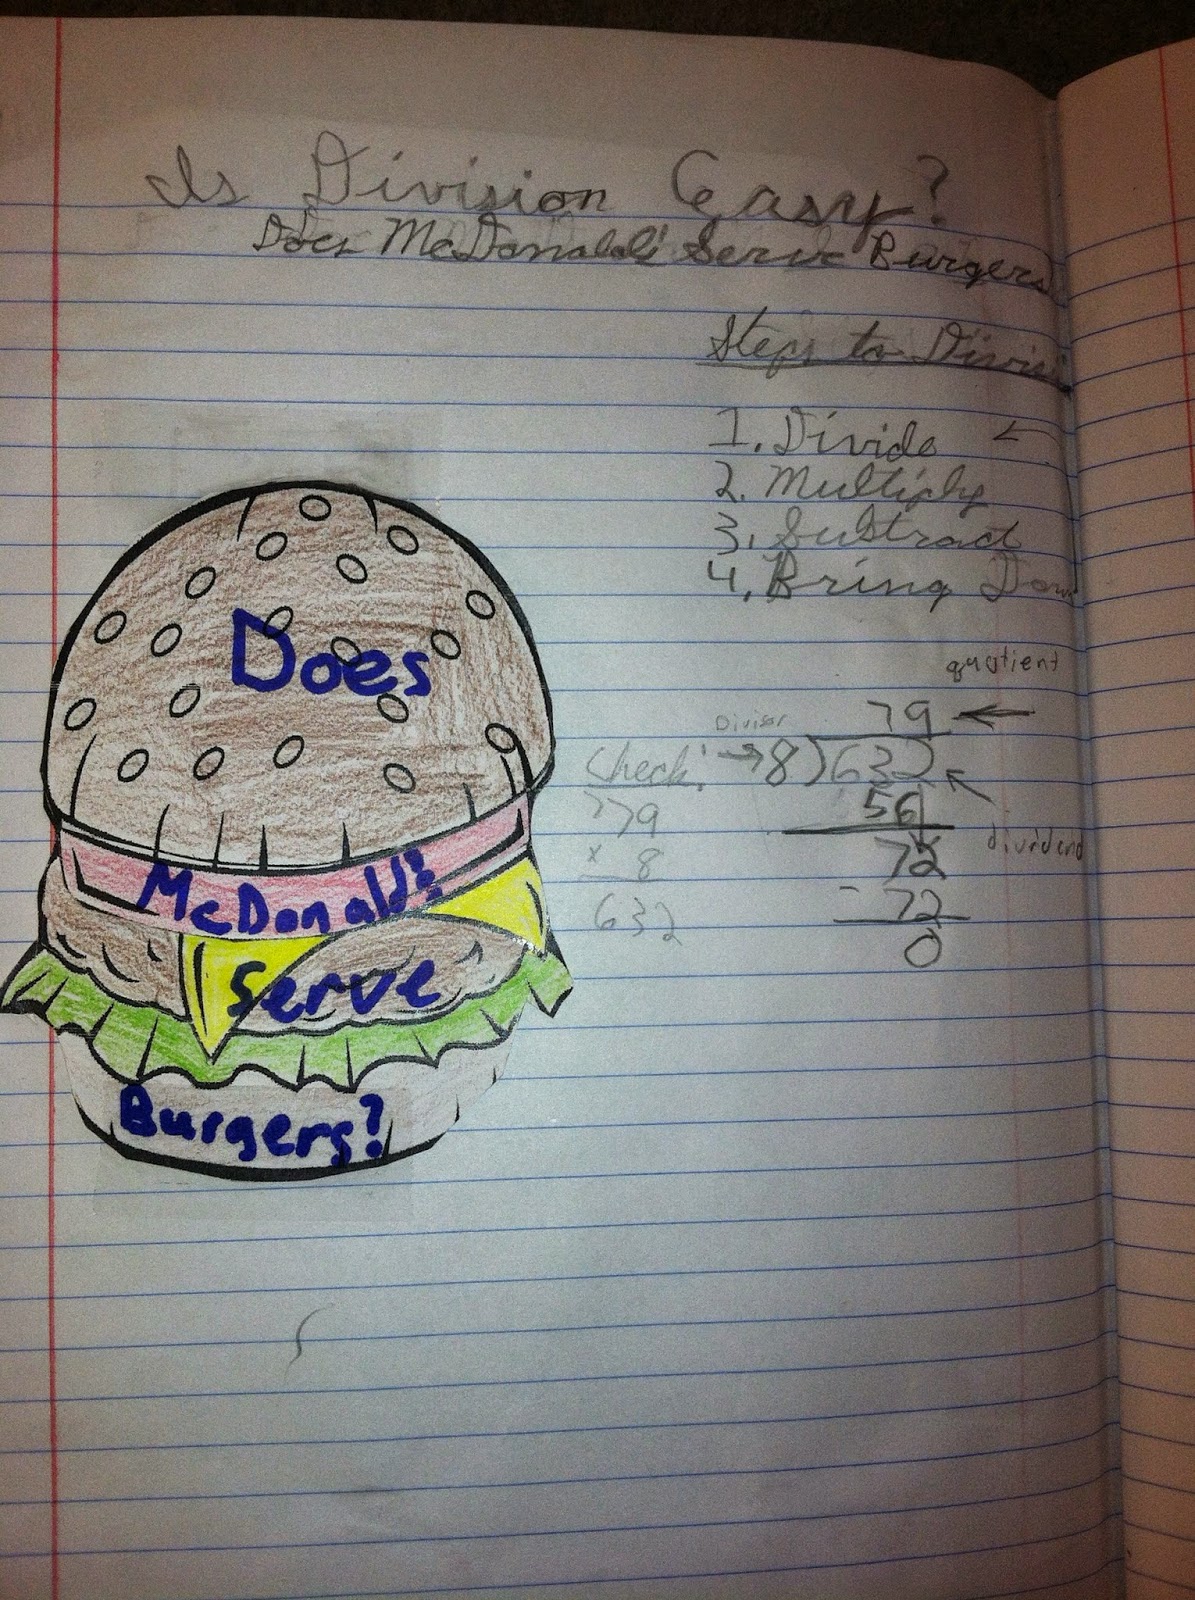 Is Division Easy?
Does McDonald's Serve Burgers
Steps to Divisi
1. Divide ←
2. Multiply
3. Subtract
4. Bring Down
quotient
79 ←
Divisor → 8)632
56
72
dividend
- 72
0
Check:
79
x 8
632
Does
McDonald's
Serve
Burgers?